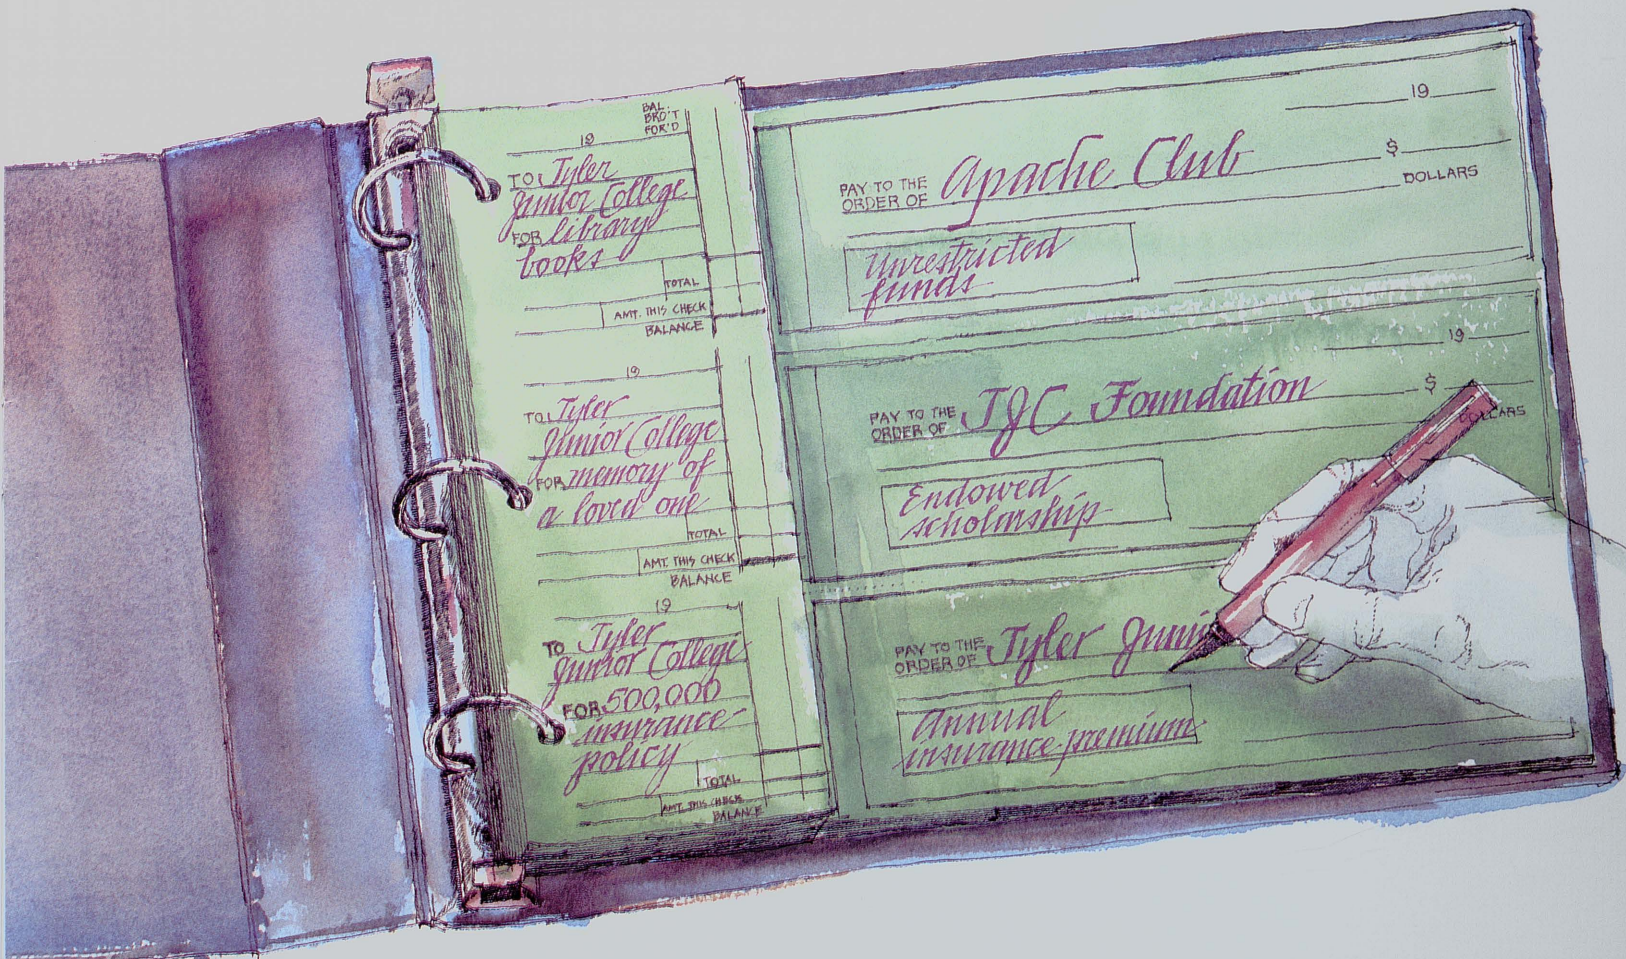 BAL.
BRO'T
FOR'D
19
TO Tyler
Junior College
FOR library
books
TOTAL
AMT. THIS CHECK
BALANCE
19
TO Tyler
Junior College
FOR memory of
a loved one
TOTAL
AMT. THIS CHECK
BALANCE
19
TO Tyler
Junior College
FOR 500,000
insurance
policy
TOTAL
AMT. THIS CHECK
BALANCE
19
PAY TO THE
ORDER OF Apache Club $
DOLLARS
Unrestricted
funds
19
PAY TO THE
ORDER OF TJC Foundation $
DOLLARS
Endowed
scholarship
PAY TO THE
ORDER OF Tyler Juni
Annual
insurance premium